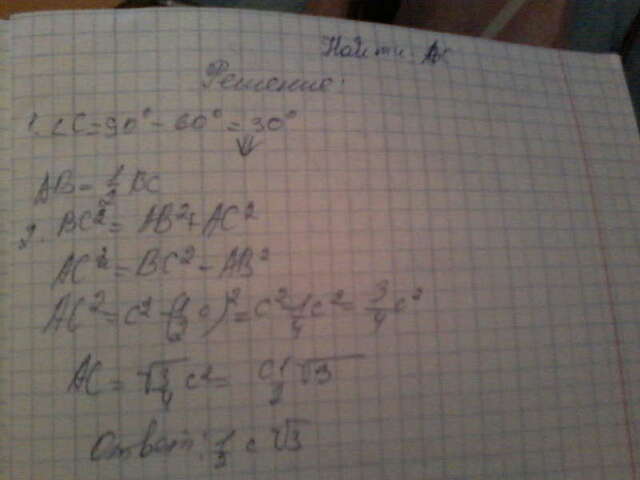 Найти: AC
Решение:
1. ∠C=90°-60°=30°
⇓
AB=1/2 BC
2. BC²=AB²+AC²
AC²=BC²-AB²
AC²=c²-(1/2 c)²=c²-1/4 c²=3/4 c²
AC=√3/4 c²= c 1/2 √3
Ответ: 1/2 c √3